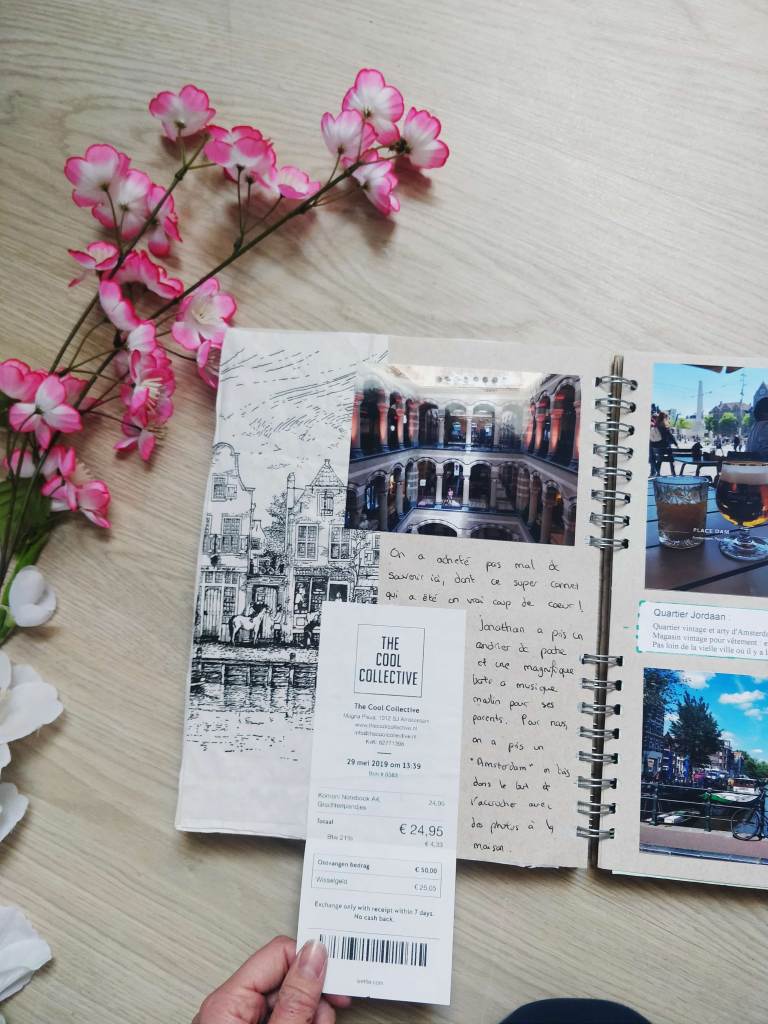 On a acheté pas mal de
souvenir ici, dont ce super carnet
qui a été un vrai coup de coeur !
Jonathan a pris un
cendrier de poche
et une magnifique
boite a musique
moulin pour ses
parents. Pour nous,
on a pris un
"Amsterdam" en bois
dans le but de
l'accrocher avec
des photos à la
maison.
THE
COOL
COLLECTIVE
The Cool Collective
Magna Plaza, 1012 SJ Amsterdam
www.thecoolcollective.nl
info@thecoolcollective.nl
KvK: 62771396
29 mei 2019 om 13:39
Bon # 9083
Komoni Notebook A4, 24,95
Grachtenpandjes
Totaal € 24,95
Btw 21% € 4,33
Ontvangen bedrag € 50,00
Wisselgeld € 25,05
Exchange only with receipt within 7 days.
No cash back.
PLACE DAM
Quartier Jordaan :
Quartier vintage et arty d'Amsterda
Magasin vintage pour vêtement : e
Pas loin de la vielle ville ou il y a l